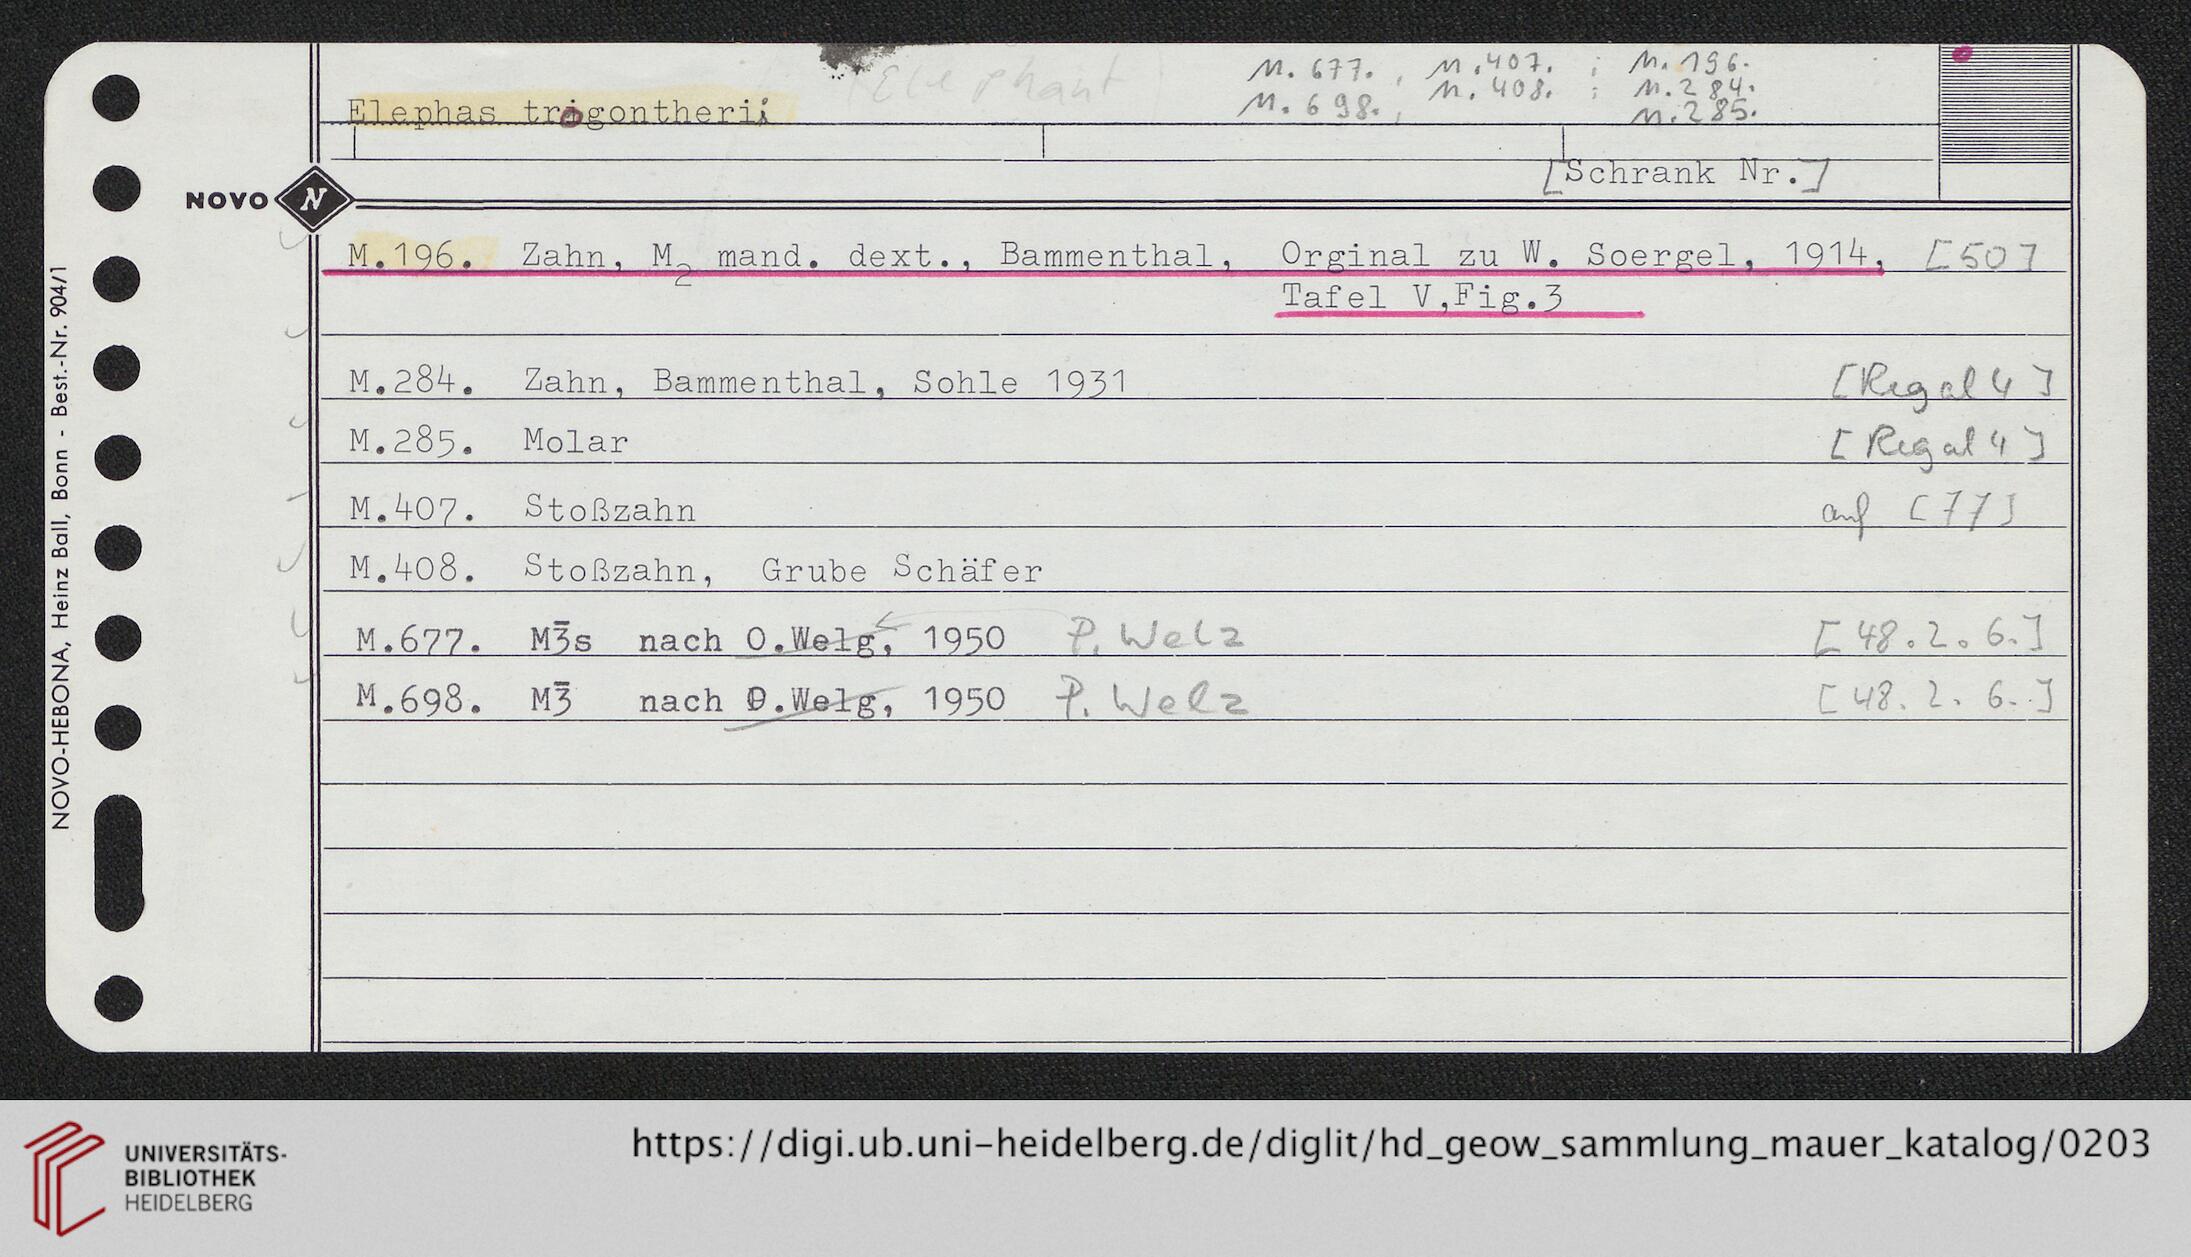 (Elephant)
M. 677. , M. 407. ; M. 196.
M. 698. , M. 408. ; M. 284.
M. 285.
Elephas trogontherii
[Schrank Nr.]
NOVO N
M.196. Zahn, M2 mand. dext., Bammenthal, Orginal zu W. Soergel, 1914, [50]
Tafel V,Fig.3
M.284. Zahn, Bammenthal, Sohle 1931 [Regal 4]
M.285. Molar [Regal 4]
M.407. Stoßzahn auf [77]
M.408. Stoßzahn, Grube Schäfer
M.677. M3̅s nach O.Welg, 1950 P. Welz [48.2.6.]
M.698. M3̅ nach O.Welg, 1950 P. Welz [48.2.6.]
NOVO-HEBONA, Heinz Ball, Bonn - Best.-Nr. 904/1
UNIVERSITÄTS-
BIBLIOTHEK
HEIDELBERG
https://digi.ub.uni-heidelberg.de/diglit/hd_geow_sammlung_mauer_katalog/0203